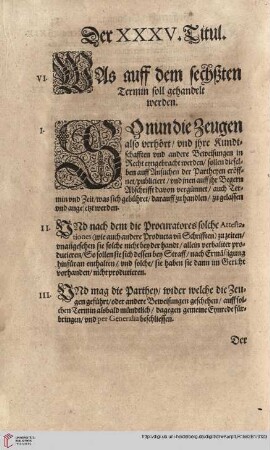 Der XXXV. Titul.
VI. WAs auff dem sechßten
Termin soll gehandelt
werden.
I. SO nun die Zeugen
also verhört / und ihre Kundt-
schafften und andere Beweisungen in
Recht eingebracht werden / sollen dieselben
auff Ansuchen der Partheyen eröff-
net / publiciert / und inen auff ihr Begern
Abschrifft davon vergünnet / auch Ter-
min und Zeit / was sich gebühret / darauff zu handlen / zu gelassen
und angesetzt werden.
II. UNd nach dem die Procuratores solche Attesta-
tiones (wie auch andere Producta und Schrifften) zu zeiten /
unangesehen sie solche nicht bey der handt / allein verbaliter pro-
ducieren / So sollen sie sich dessen bey Straff / nach Ermässigung
hinfüran enthalten / und solche / sie haben sie dann im Gericht
vorhanden / nicht producieren.
III. UNd mag die Parthey / wider welche die Zeu-
gen geführt / oder andere Beweisungen geschehen / auff sol-
chen Termin alsbald mündtlich / dagegen gemeine Einrede für-
bringen / und per Generalia beschliessen.
Der